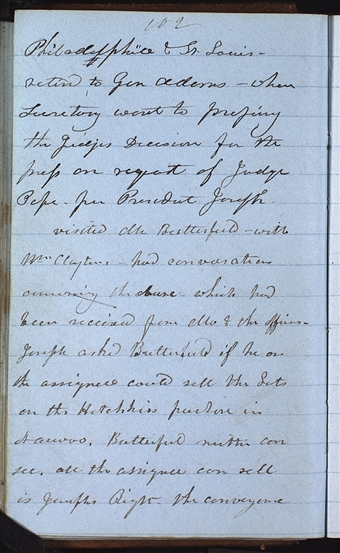 102
Philadelphia & St. Louis -
retired to Gen Adams - when
Secretary went to prepring
the Judges Decision for the
press on request of Judge
Pope. per President Joseph.
visited Mr Butterfield - with
Wm Clayton. - had conversation
concerning the abuse which had
been received from Mo & the offices-
Joseph asked Butterfield if he or
the assignee could sell the lots
on the Hotchkiss purchase in
Nauvoo. Butterfield neither can
see. all the assignee can sell
is Josephs Right. the conveyance